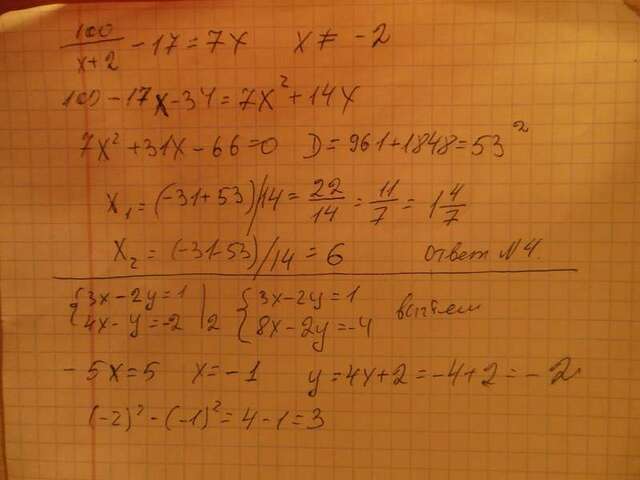 100/(x+2) - 17 = 7x   x ≠ -2
100 - 17x - 34 = 7x² + 14x
7x² + 31x - 66 = 0   D = 961 + 1848 = 53²
x₁ = (-31 + 53)/14 = 22/14 = 11/7 = 1 4/7
x₂ = (-31-53)/14 = 6   Ответ N4.
{3x - 2y = 1   {3x - 2y = 1
{4x - y = -2 | 2   {8x - 2y = -4   вычтем
-5x = 5   x = -1   y = 4x + 2 = -4 + 2 = -2
(-2)² - (-1)² = 4 - 1 = 3